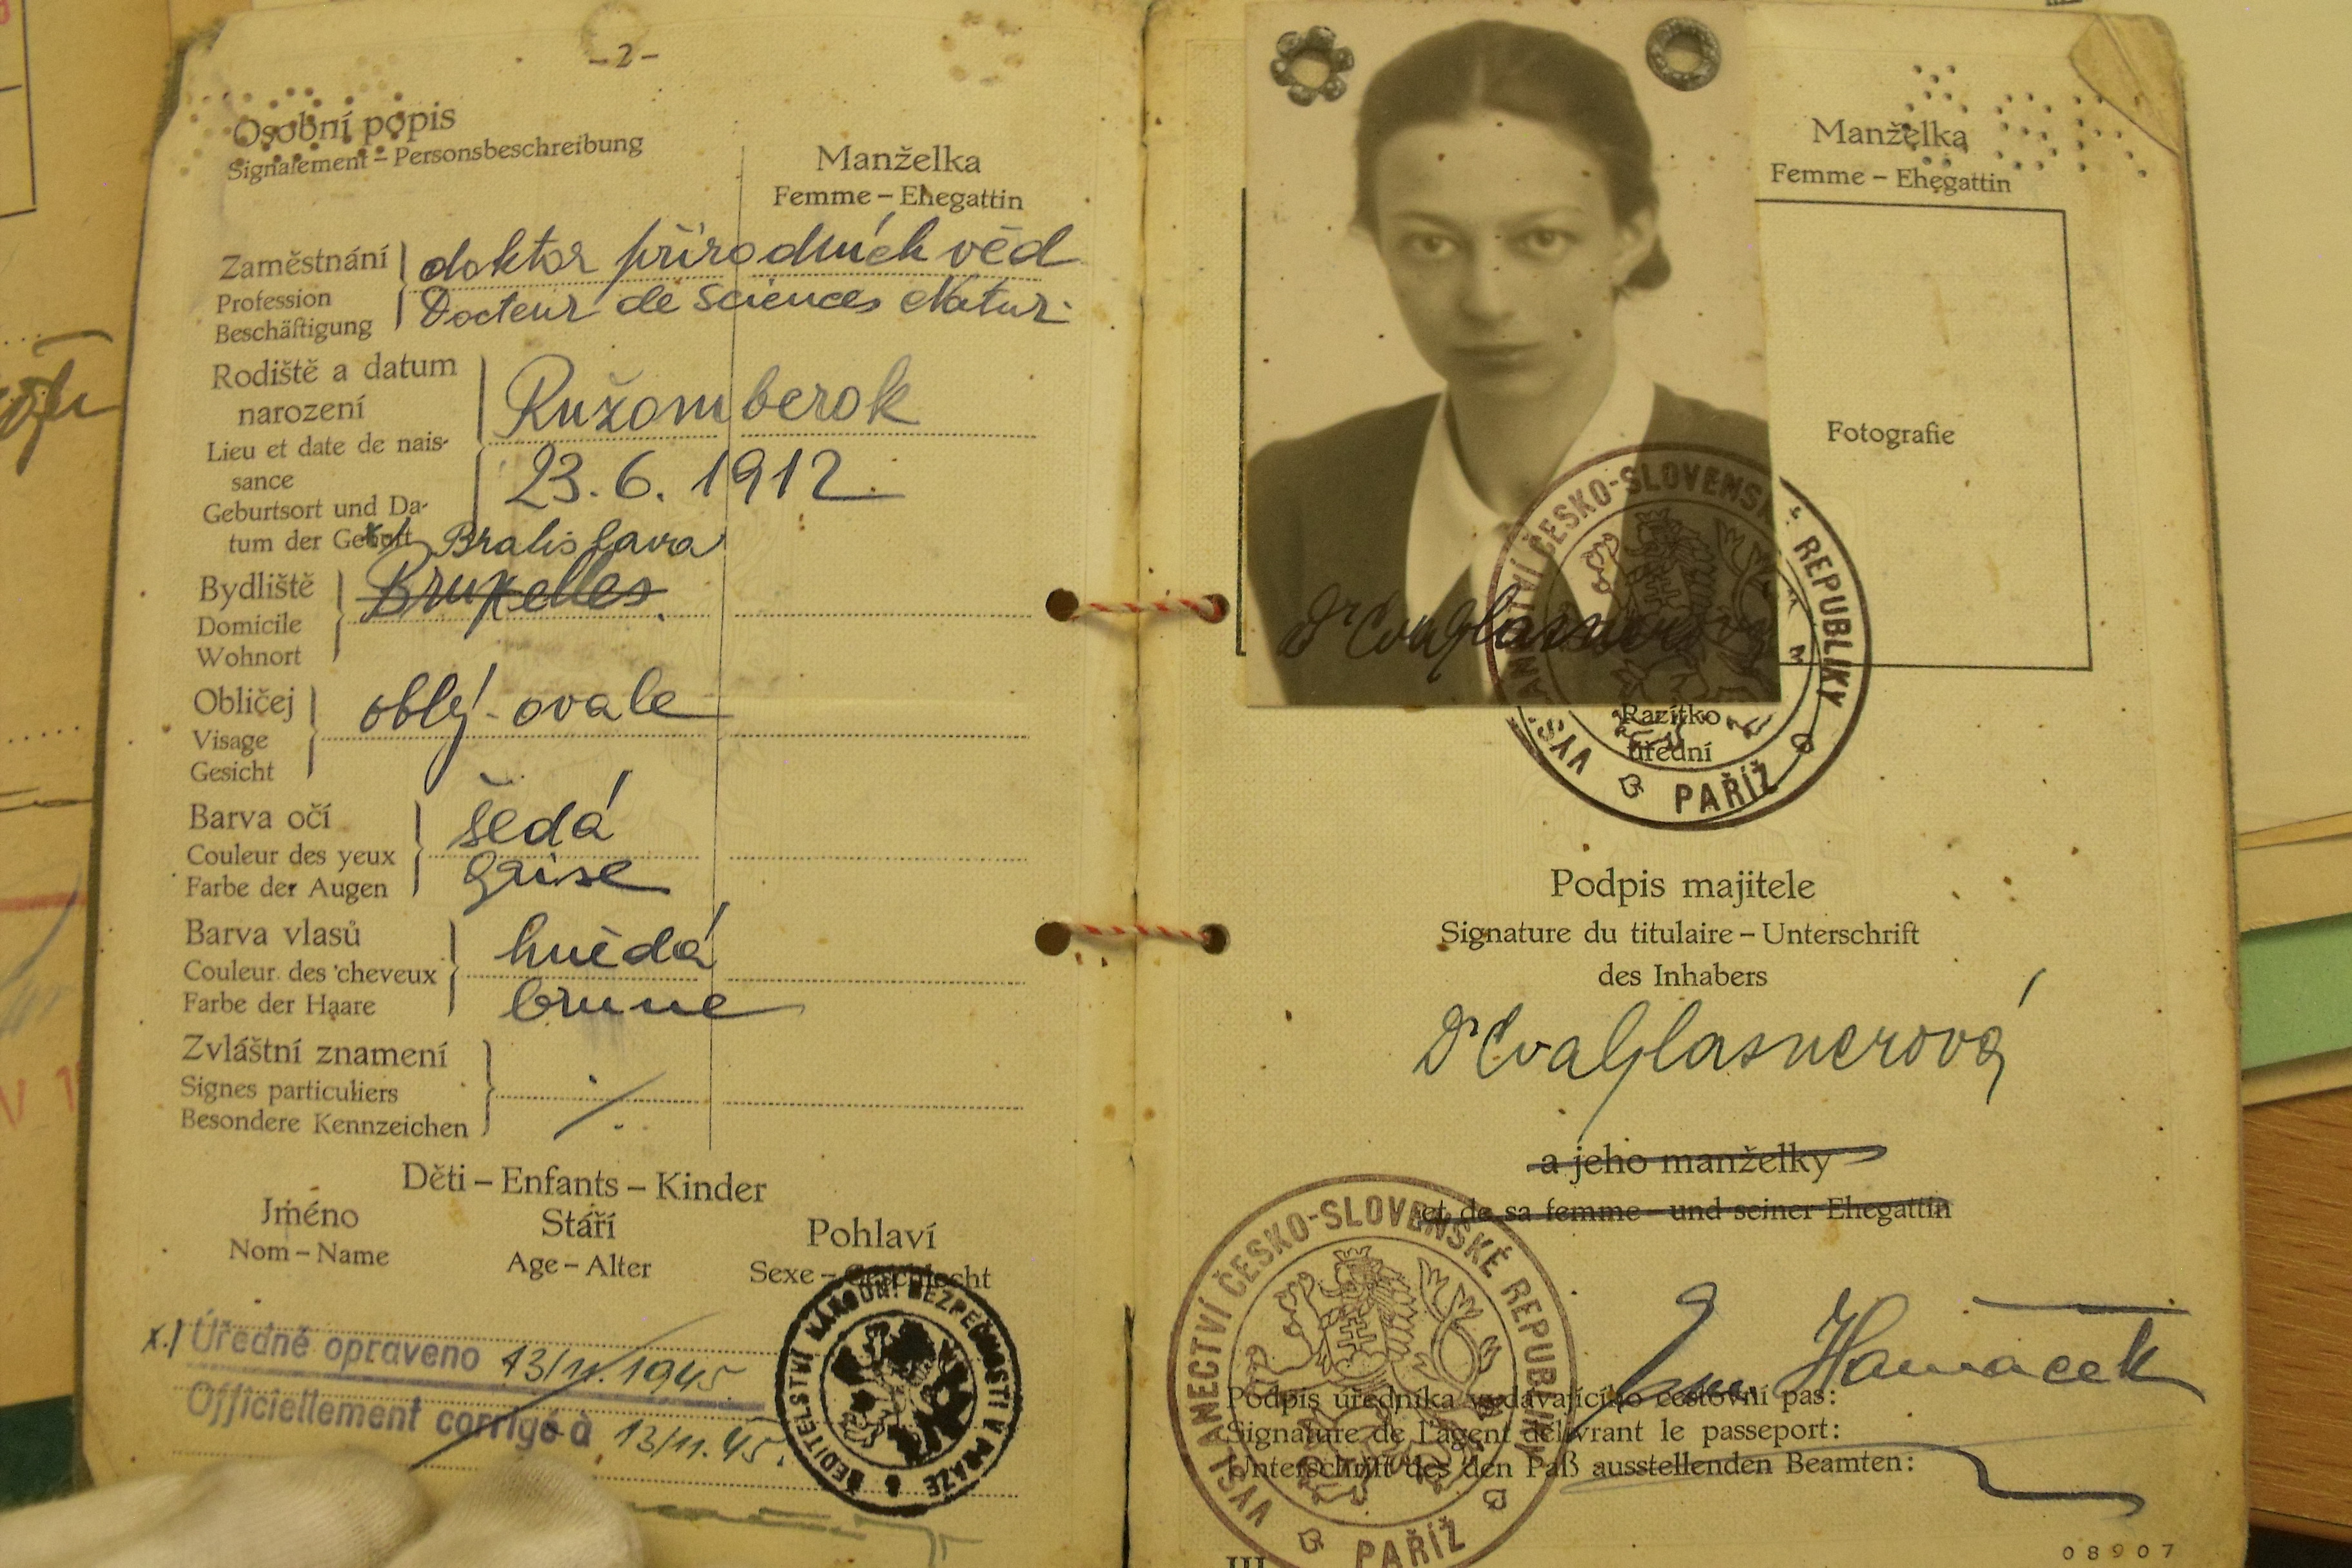 - 2 -
Osobní popis
Signalement – Personsbeschreibung
Manželka
Femme – Ehegattin
Zaměstnání
Profession
Beschäftigung
doktor přírodních věd
Docteur de Sciences Natur.
Rodiště a datum
narození
Lieu et date de nais-
sance
Geburtsort und Da-
tum der Geburt
Ružomberok
23. 6. 1912.
x) Bratislava
Bydliště
Domicile
Wohnort
Bruxelles.
Obličej
Visage
Gesicht
oblý - ovale
Barva očí
Couleur des yeux
Farbe der Augen
šedá
Grise
Barva vlasů
Couleur des cheveux
Farbe der Haare
hnědá
brune
Zvláštní znamení
Signes particuliers
Besondere Kennzeichen
./.
Děti – Enfants – Kinder
Jméno
Nom – Name
Stáří
Age – Alter
Pohlaví
Sexe – Geschlecht
x.) Úředně opraveno 13/11. 1945.
Officiellement corrigé à 13/11. 45.
ŘEDITELSTVÍ NÁRODNÍ BEZPEČNOSTI V PRAZE 8
Manželka
Femme – Ehegattin
Fotografie
Dr Eva Glasnerová
VYSLANECTVÍ ČESKO-SLOVENSKÉ REPUBLIKY
PAŘÍŽ
Razítko
úřední
Podpis majitele
Signature du titulaire – Unterschrift
des Inhabers
Dr Eva Glasnerová
a jeho manželky
et de sa femme – und seiner Ehegattin
VYSLANECTVÍ ČESKO-SLOVENSKÉ REPUBLIKY
PAŘÍŽ
Podpis úředníka vydávajícího cestovní pas:
Signature de l'agent délivrant le passeport:
Unterschrift des den Paß ausstellenden Beamten:
III
08907